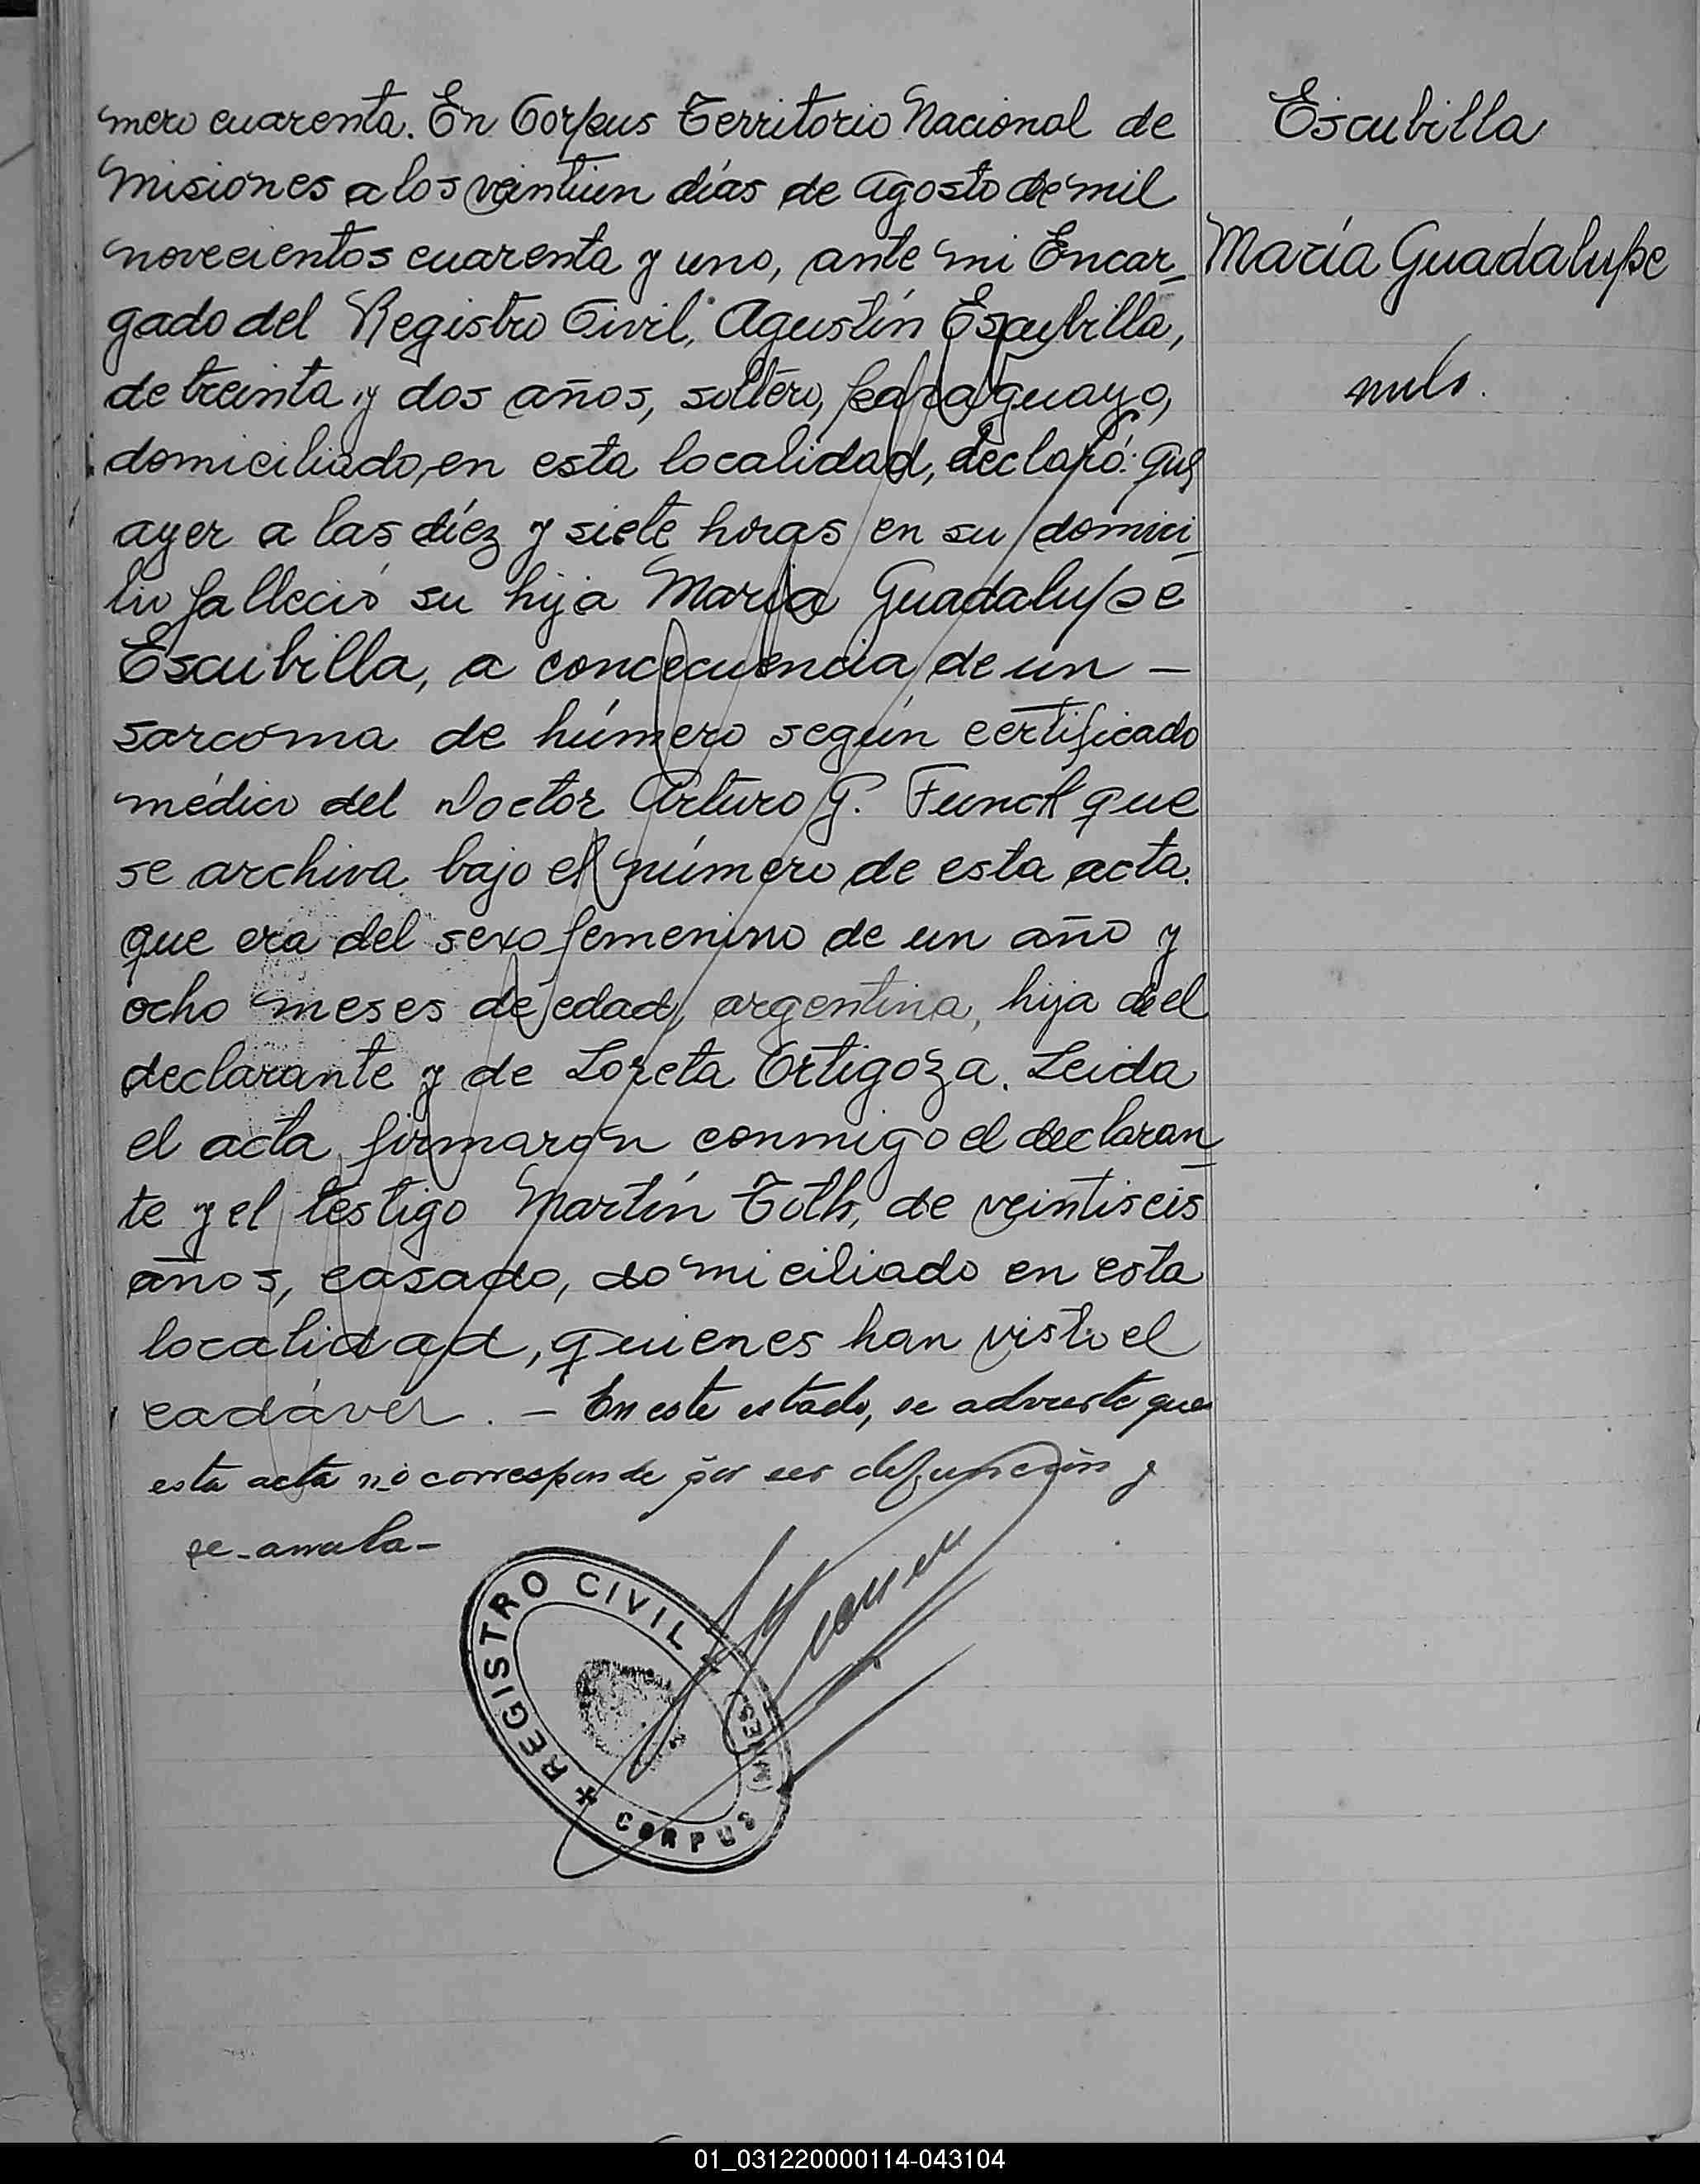 mero cuarenta. En Corpus Territorio Nacional de
Misiones a los veintiun días de Agosto de mil
novecientos cuarenta y uno, ante mi Encar-
gado del Registro Civil, Agustín Escubilla,
de treinta y dos años, soltero, paraguayo,
domiciliado, en esta localidad, declaró: que
ayer a las diéz y siete horas en su domici-
lio falleció su hija María Guadalupe
Escubilla, a concecuencia de un —
sarcoma de húmero según certificado
médico del Doctor Arturo G. Funck que
se archiva bajo el número de esta acta.
que era del sexo femenino de un año y
ocho meses de edad, argentina, hija del
declarante y de Loreta Ortigoza. Leida
el acta firmaron conmigo el declaran-
te y el testigo Martín Toth, de veintiseis
años, casado, domiciliado en esta
localidad, quienes han visto el
cadáver. — En este estado, se advierte que
esta acta no corresponde por ser defunción y
se anula —
Escubilla
María Guadalupe
nulo.
REGISTRO CIVIL
CORPUS (MNES)
01_031220000114-043104